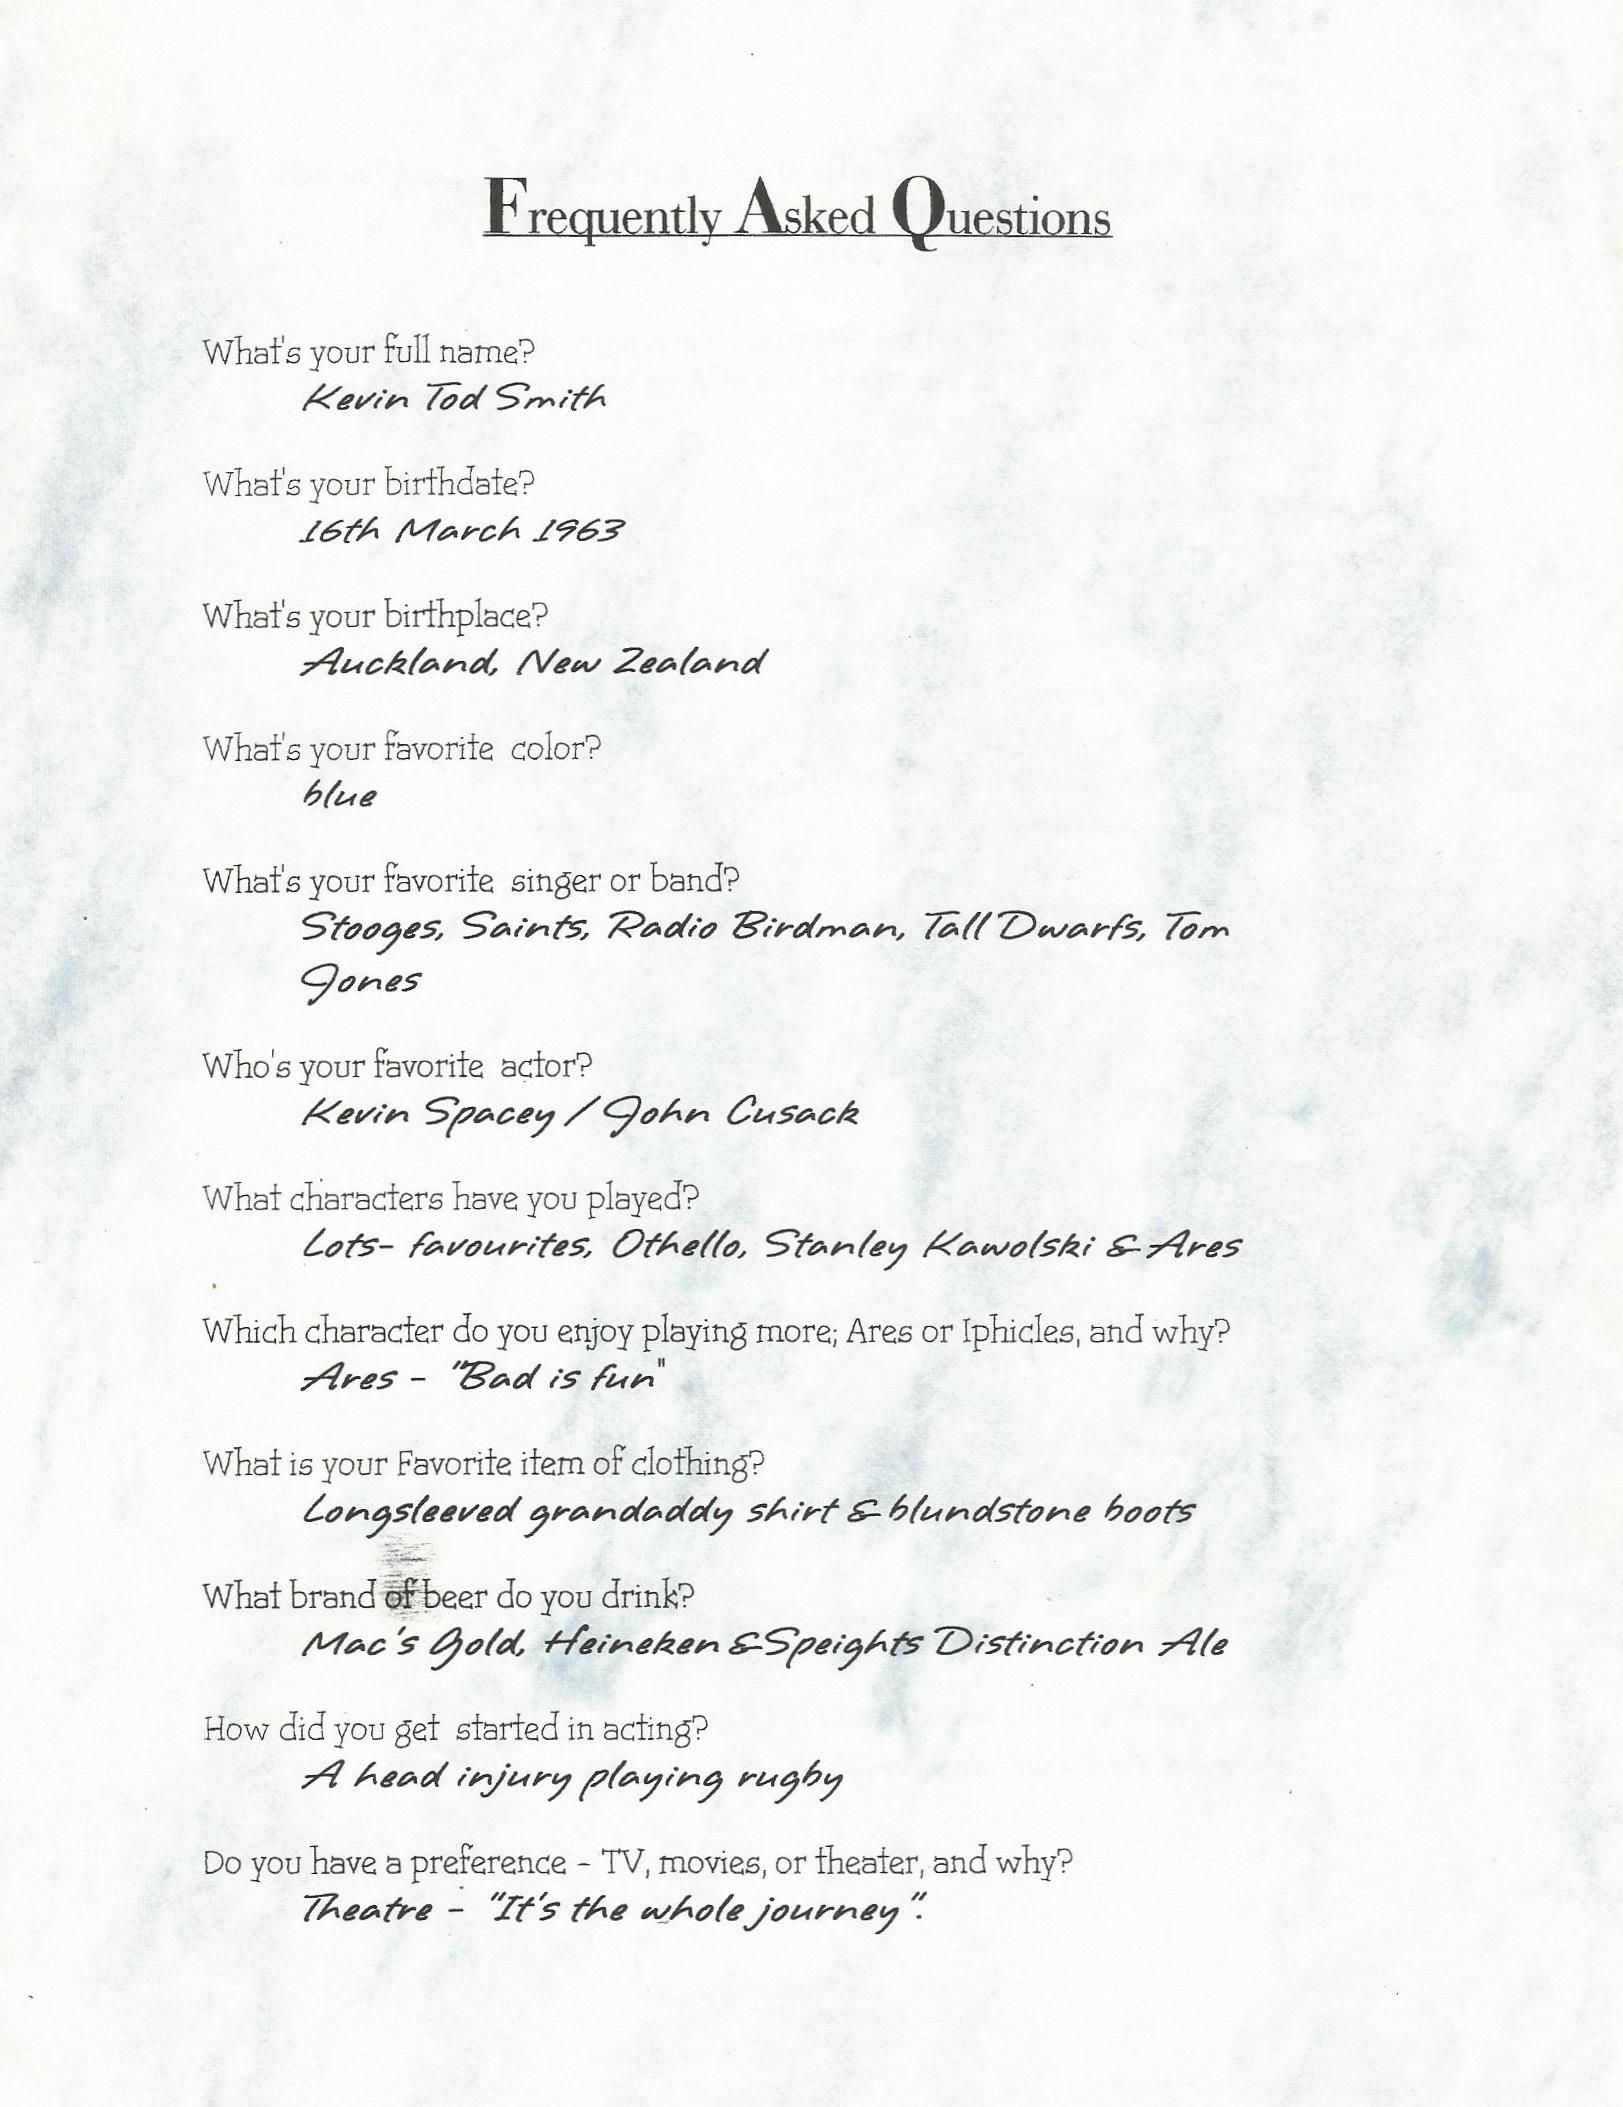 Frequently Asked Questions
What's your full name?
Kevin Tod Smith
What's your birthdate?
16th March 1963
What's your birthplace?
Auckland, New Zealand
What's your favorite color?
blue
What's your favorite singer or band?
Stooges, Saints, Radio Birdman, Tall Dwarfs, Tom
Jones
Who's your favorite actor?
Kevin Spacey / John Cusack
What characters have you played?
Lots- favourites, Othello, Stanley Kawolski & Ares
Which character do you enjoy playing more; Ares or Iphicles, and why?
Ares - "Bad is fun"
What is your Favorite item of clothing?
Longsleeved grandaddy shirt & blundstone boots
What brand of beer do you drink?
Mac's Gold, Heineken &Speights Distinction Ale
How did you get started in acting?
A head injury playing rugby
Do you have a preference - TV, movies, or theater, and why?
Theatre - "It's the whole journey".